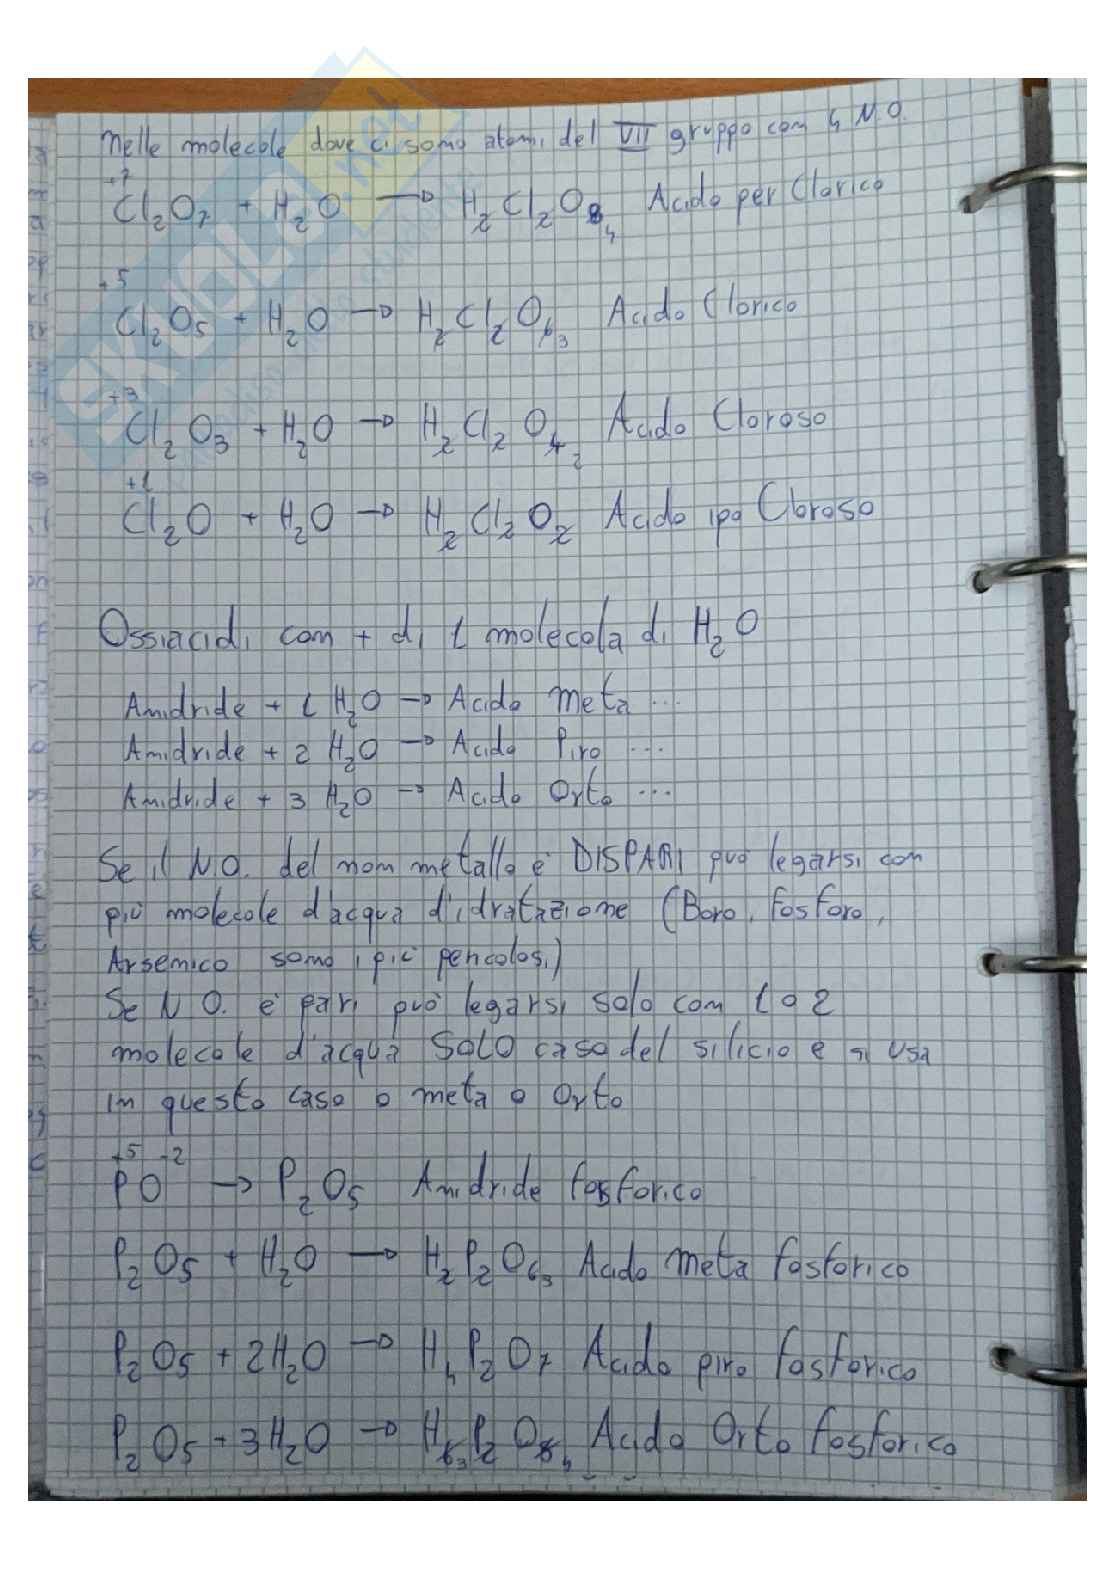 Nelle molecole dove ci sono atomi del VII gruppo con 4 N.O.
+7
Cl2O7 + H2O → H2Cl2O8 4 Acido per Clorico
+5
Cl2O5 + H2O → H2Cl2O6 3 Acido Clorico
+3
Cl2O3 + H2O → H2Cl2O4 2 Acido Cloroso
+1
Cl2O + H2O → H2Cl2O2 Acido ipo Cloroso
Ossiacidi con + di 1 molecola di H2O
Anidride + 1 H2O → Acido Meta ...
Anidride + 2 H2O → Acido Piro ...
Anidride + 3 H2O → Acido Orto ...
Se il N.O. del non metallo è DISPARI può legarsi con
più molecole d'acqua d'idratazione (Boro, fosforo,
Arsenico sono i più pericolosi)
Se N.O. è pari può legarsi solo con 1 o 2
molecole d'acqua SOLO caso del silicio e si usa
in questo caso o meta o Orto
+5 -2
PO → P2O5 Anidride fosforica
P2O5 + H2O → H2P2O6 3 Acido Meta fosforico
P2O5 + 2H2O → H4P2O7 Acido piro fosforico
P2O5 + 3H2O → H6 3P2O8 4 Acido Orto fosforico
SKUOLA.net